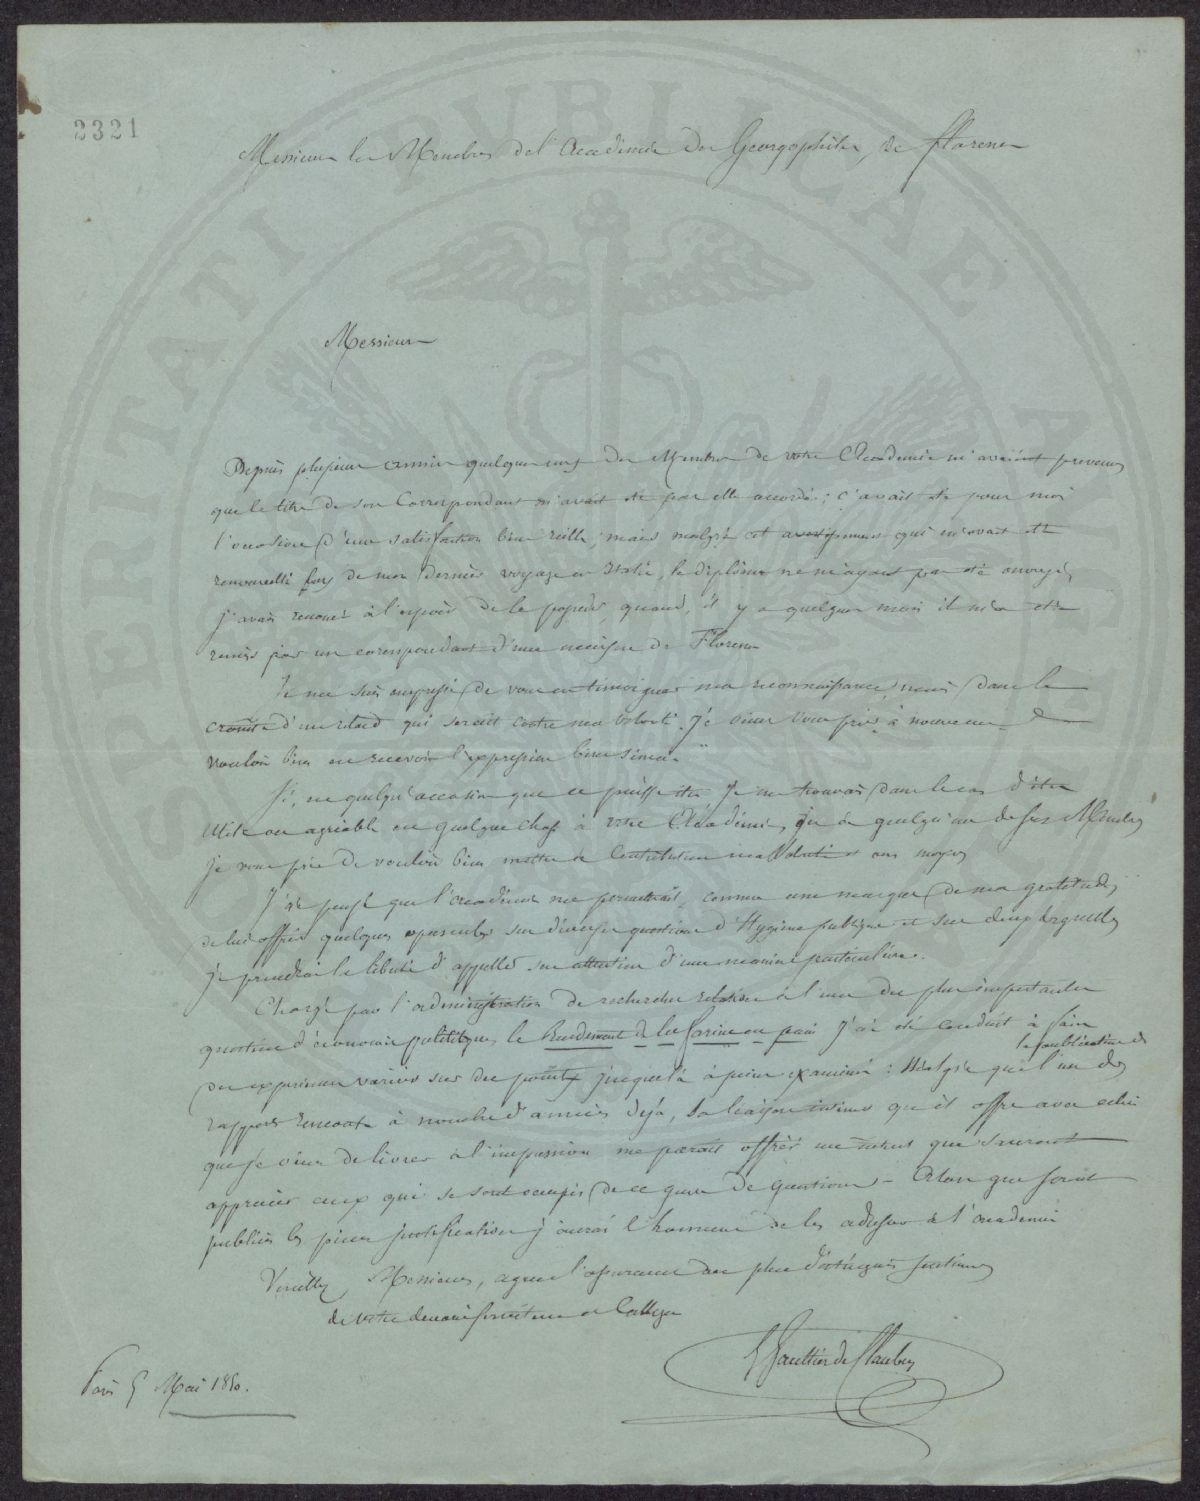 2321
Messieurs les Membres de l'Académie des Georgophiles, de Florence
Messieurs
Depuis plusieurs années quelques uns des Membres de votre Académie m'avaient prevenu
que le titre de son Correspondant m'avait été par elle accordé; c'avait été pour moi
l'occasion d'une satisfaction bien réelle, mais malgré cet avertissement qui m'avait été
renouvellé lors de mon dernier voyage en Italie, le diplôme ne m'ayant pas été envoyé,
j'avais renoncé à l'espoir de le posséder, quand, il y a quelques mois il m'a été
remis par un correspondant d'une maison de Florence
Je me suis empressé de vous en témoigner ma reconnaissance, mais dans la
crainte d'un retard qui serait contre ma volonté je viens vous prier à nouveau de
vouloir bien en recevoir l'expression bien sincère
Si, en quelqu'occasion que ce puisse être je me trouvais dans le cas d'être
utile ou agréable en quelque chose à votre Académie, ou à quelqu'un de ses Membres
je vous prie de vouloir bien mettre à contribution ma volonté et mes moyens
J'ai pensé que l'académie me permettrait, comme une marque de ma gratitude,
de lui offrir quelques opuscules sur diverses questions d'Hygiène publique et sur deux desquelles
je prendrai la liberté d'appeller son attention d'une manière particulière.
Chargé par l'administration de recherches relatives à l'une des plus importantes
questions d'économie politique, le Rendement de la farine en pain j'ai été conduit à faire
la publication de
des expériences variées sur des points jusques là à peine examinés: Malgré que l'un des
rapports remonte à nombre d'années déjà, la liaison intime qu'il offre avec celui
que je viens de livrer à l'impression me parait offrir un intérêt que sauront
apprécier ceux qui se sont occupés de ce genre de questions – Alors que seront
publiées les pièces justificatives j'aurai l'honneur de les adresser à l'académie
Veuillez, Messieurs, agréer l'assurance des plus distingués sentimens
de votre dévoué serviteur et Collègue
H Gaultier de Claubry
Paris 5 Mai 1850.